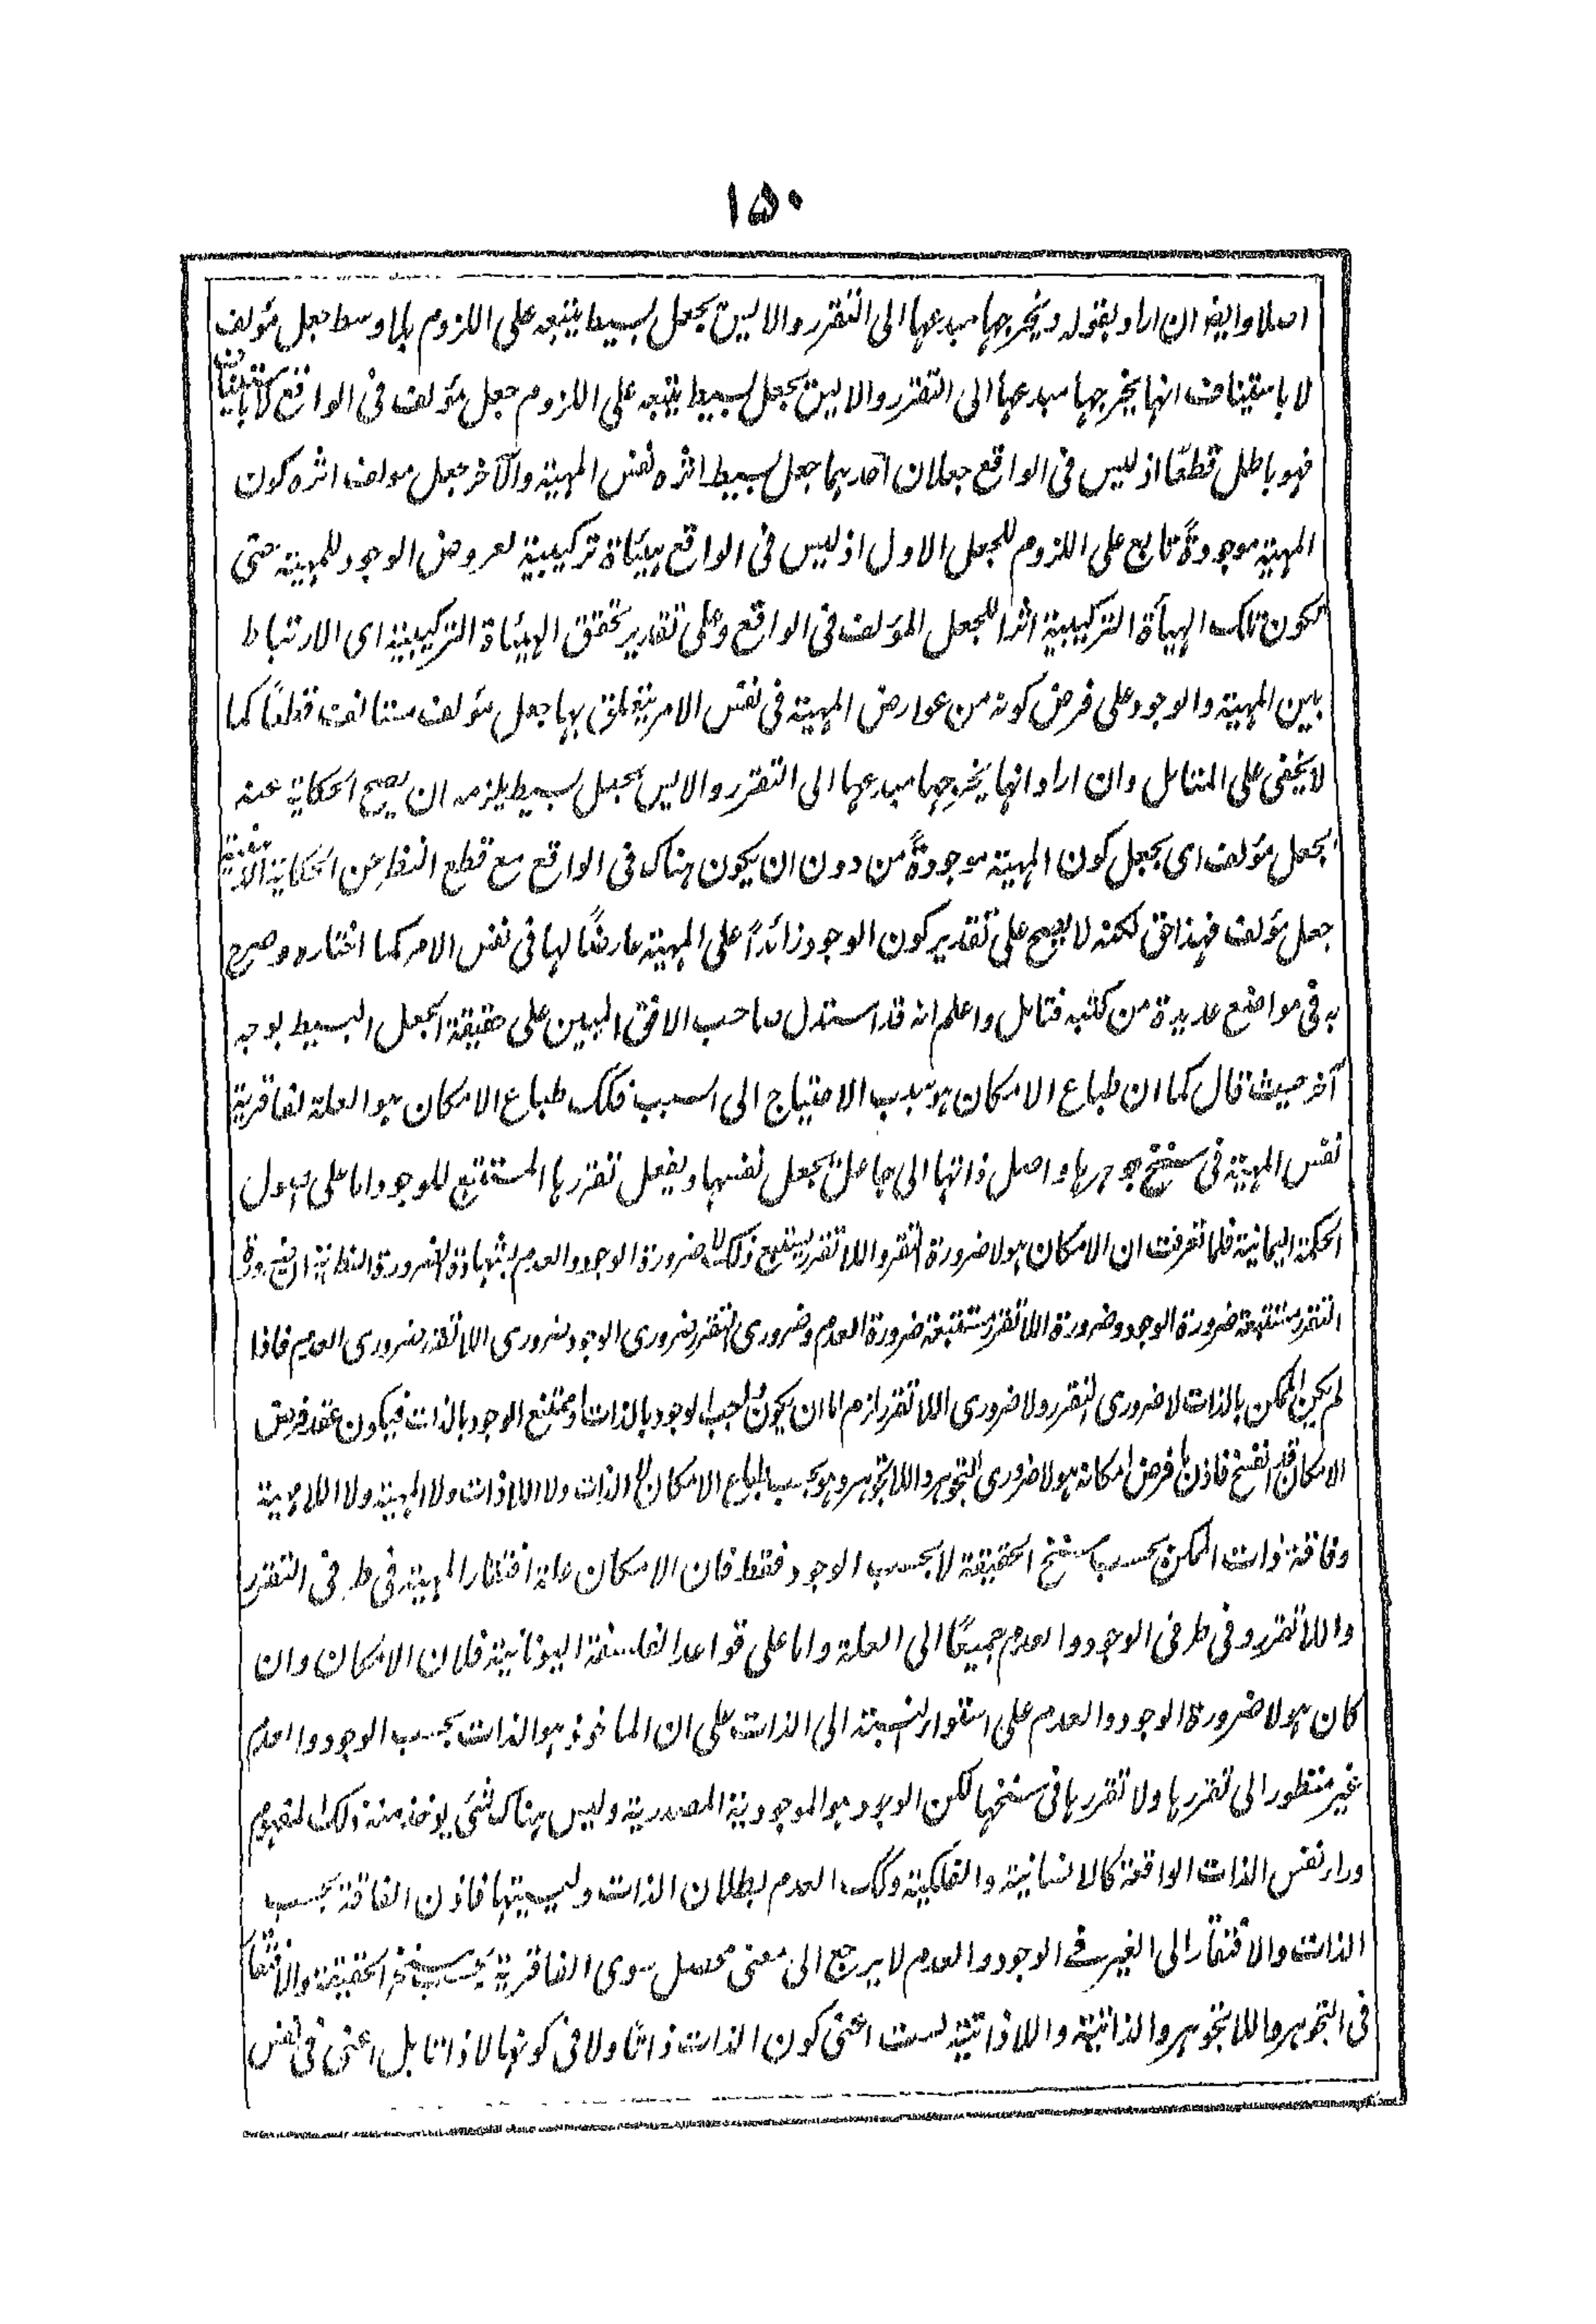 ۱۵۰
اصلا وايضا ان اراد بقوله ويخرجها مبدعها الى التقرر والاليس بجعل بسيط يتبعه على اللزوم بلا وسط جعل مؤلف
لا باستيناف انها يخرجها مبدعها الى التقرر والاليس بجعل بسيط يتبعه على اللزوم جعل مؤلف فى الواقع لا باستيناف
فهو باطل قطعًا اذ ليس فى الواقع جعلان احدهما جعل بسيط اثره نفس المهية والآخر جعل مولف اثره كون
المهية موجودةً تابع على اللزوم للجعل الاول اذ ليس فى الواقع هيئاة تركيبية لعروض الوجود للمهية حتى
تكون تلك الهيأة التركيبية اثرا للجعل المؤلف فى الواقع وعلى تقدير تحقق الهيئاة التركيبية اى الارتباط
بين المهية والوجود على فرض كونه من عوارض المهية فى نفس الامر يتعلق بها جعل مؤلف مستانف قطعًا كما
لا يخفى على المتامل وان اراد انها يخرجها مبدعها الى التقرر والاليس بجعل بسيط يلزمه ان يصح الحكاية عنه
بجعل مؤلف اى بجعل كون المهية موجودةً من دون ان يكون هناك فى الواقع مع قطع النظر عن الحكاية الذهنية
جعل مؤلف فهذا حق لكنه لا يصح على تقدير كون الوجود زائداً على المهية عارضًا لها فى نفس الامر كما اختاره وصرح
به فى مواضع عديدة من كتبه فتامل واعلم انه قد استدل صاحب الافق المبين على حقيقة الجعل البسيط بوجه
آخر حيث قال كما ان طباع الامكان هو سبب الاحتياج الى السبب فكك طباع الامكان هو العلة لفاقرية
نفس المهية فى سنخ جوهرها واصل ذاتها الى جاعل يجعل نفسها ويفعل تقررها المستتبع للموجود اما على اصول
الحكمة اليمانية فلما تعرفت ان الامكان هو لا ضرورة التقرر واللا تقرر يستتبع ذلك لا ضرورة الوجود والعدم بشهادة الضرورة الفطرية ان ضرورة
التقرر مستتبعة ضرورة الوجود وضرورة اللا تقرر مستتبعة ضرورة العدم وضرورى التقرر ضرورى الوجود ضرورى اللا تقرر ضرورى العدم فاذا
لم يكن الممكن بالذات لا ضرورى التقرر ولا ضرورى اللا تقرر لزم اما ان يكون واجب الوجود بالذات او ممتنع الوجود بالذات فيكون عقد فرض
الامكان قد انفسخ فاذن ما فرض امكانه هو لا ضرورى التجوهر واللا تجوهر وهو بحسب طباع الامكان لا الذات ولا اللا ذات ولا المهية ولا اللا مهية
وفاقة ذات الممكن بحسب سنخ الحقيقة لا بحسب الوجود فقط فان الامكان علة افتقار المهية فى طرفى التقرر
واللا تقرر وفى طرفى الوجود والعدم جميعًا الى العلة واما على قواعد الفلسفة اليونانية فلان الامكان وان
كان هو لا ضرورة الوجود والعدم على استواء النسبة الى الذات على ان الماخوذ هو الذات بحسب الوجود والعدم
غير منظور الى تقررها ولا تقررها فى سنخها لكن الوجود هو الموجودية المصدرية وليس هناك شئ يوخذ منه ذلك المفهوم
وراء نفس الذات الواقعة كالانسانية والفلكية وكك العدم لبطلان الذات وليسيتها فاذن الفاقة بحسب
الذات والافتقار الى الغير فى الوجود والعدم لا يرجع الى معنى محصل سوى الفاقرية بحسب سنخ الحقيقة والافتقار
فى التجوهر واللا تجوهر والذاتية واللا ذاتية لست اعنى كون الذات ذاتا ولا فى كونها لا ذاتا بل اعنى فى نفس